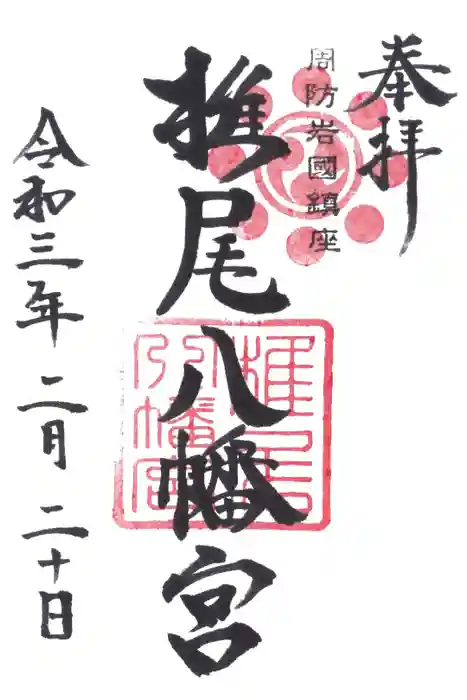 奉拝
周防岩國鎮座
椎尾八幡宮
椎尾八幡宮
令和三年二月二十日